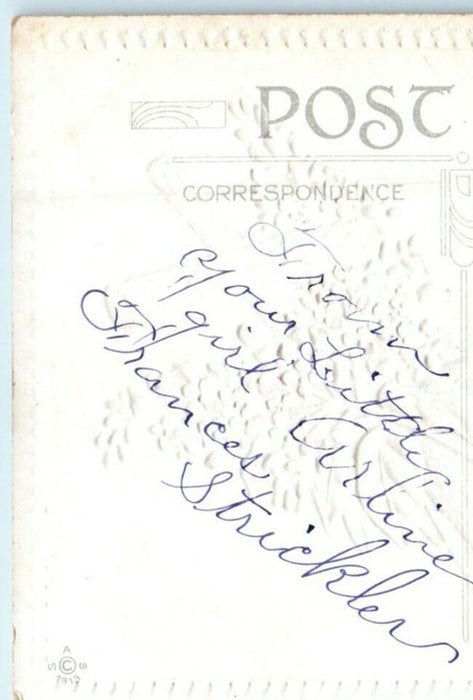 POST
CORRESPONDENCE
From
your Little
girl Arline
Frances
Strickler
A
S © B